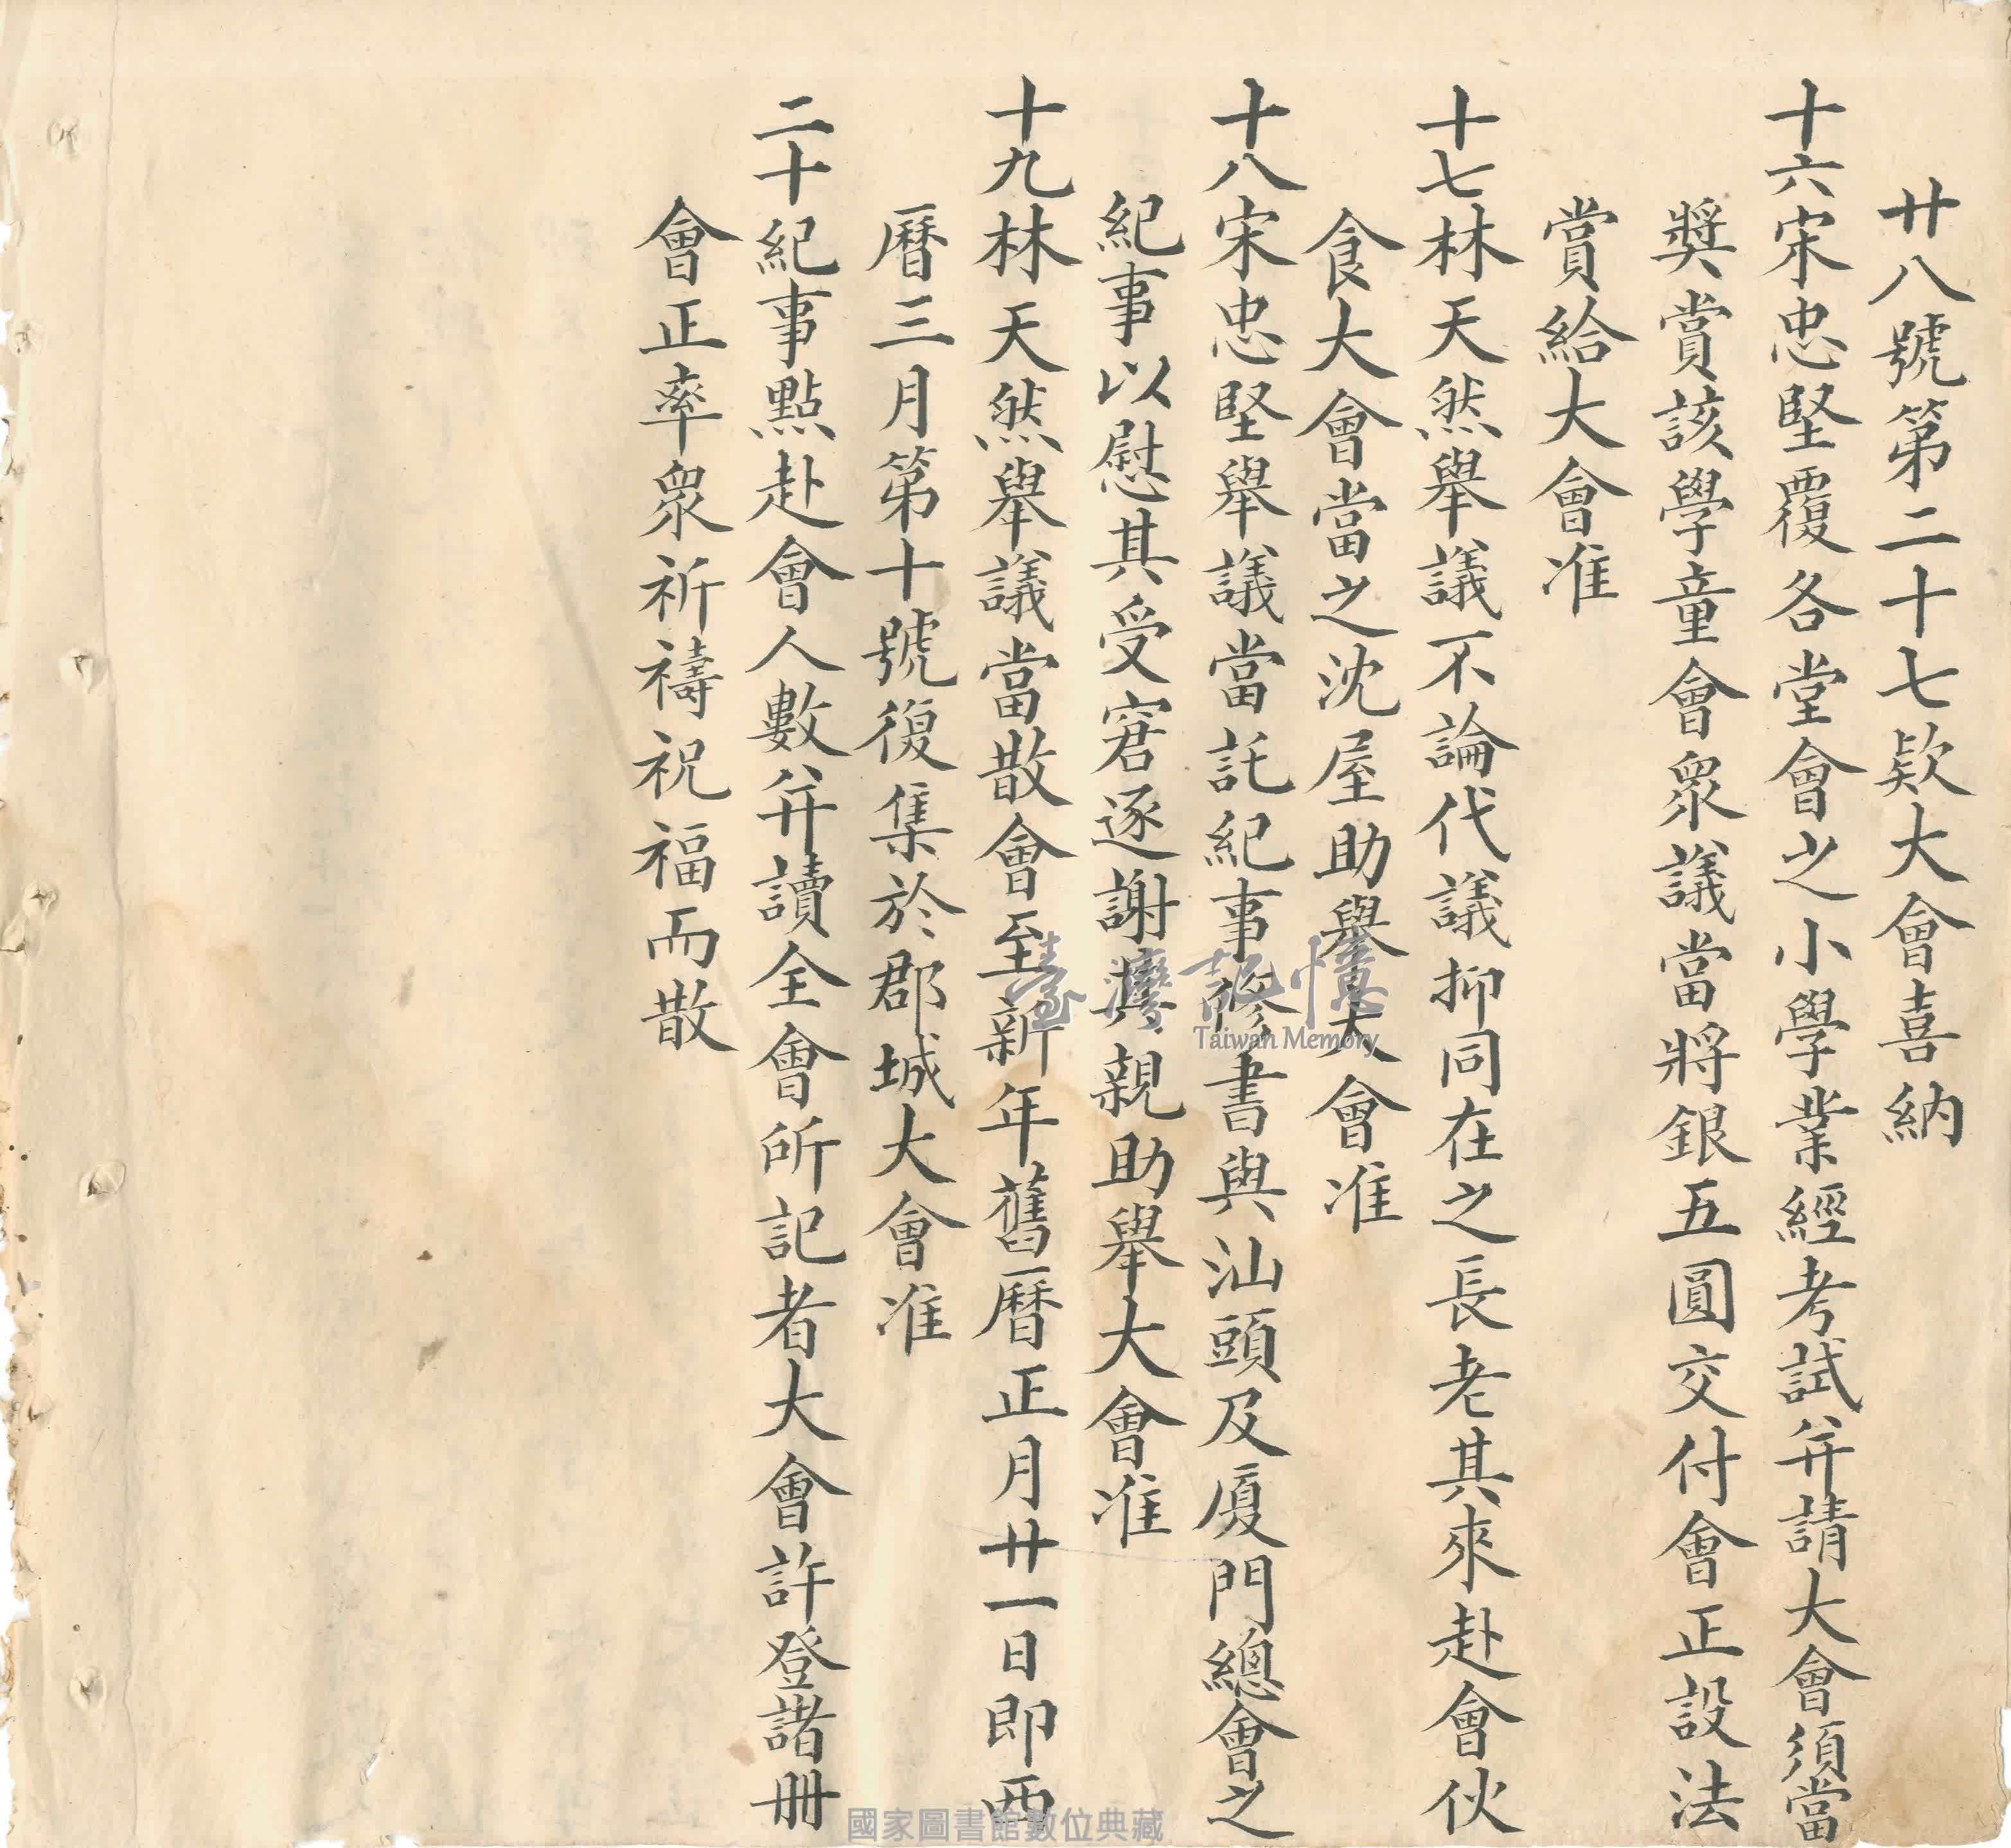 廿八號第二十七欵大會喜納
十六宋忠堅覆各堂會之小學業經考試并請大會須當
獎賞該學童會眾議當將銀五圓交付會正設法
賞給大會准
十七林天然舉議不論代議抑同在之長老其來赴會伙
食大會當之沈屋助舉大會准
十八宋忠堅舉議當託紀事修書與汕頭及廈門總會之
紀事以慰其受窘逐謝其親助舉大會准
十九林天然舉議當散會至新年舊曆正月廿一日即西
曆三月第十號復集於郡城大會准
二十紀事點赴會人數并讀全會所記者大會許登諸冊
會正率眾祈禱祝福而散
臺灣記憶
Taiwan Memory
國家圖書館數位典藏